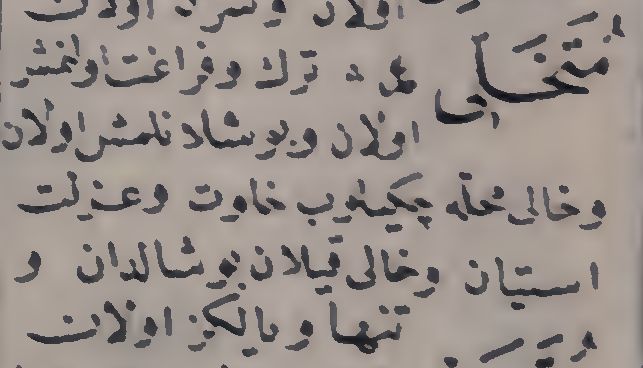 اولان
متخلى ترك وفراغت اولنمش
اولان وبوشادلمش اولان
وخالى محله چكيلوب خلوت وعزلت
استيان وخالى قيلان بوشالدان و
تنها ويالكز اولان